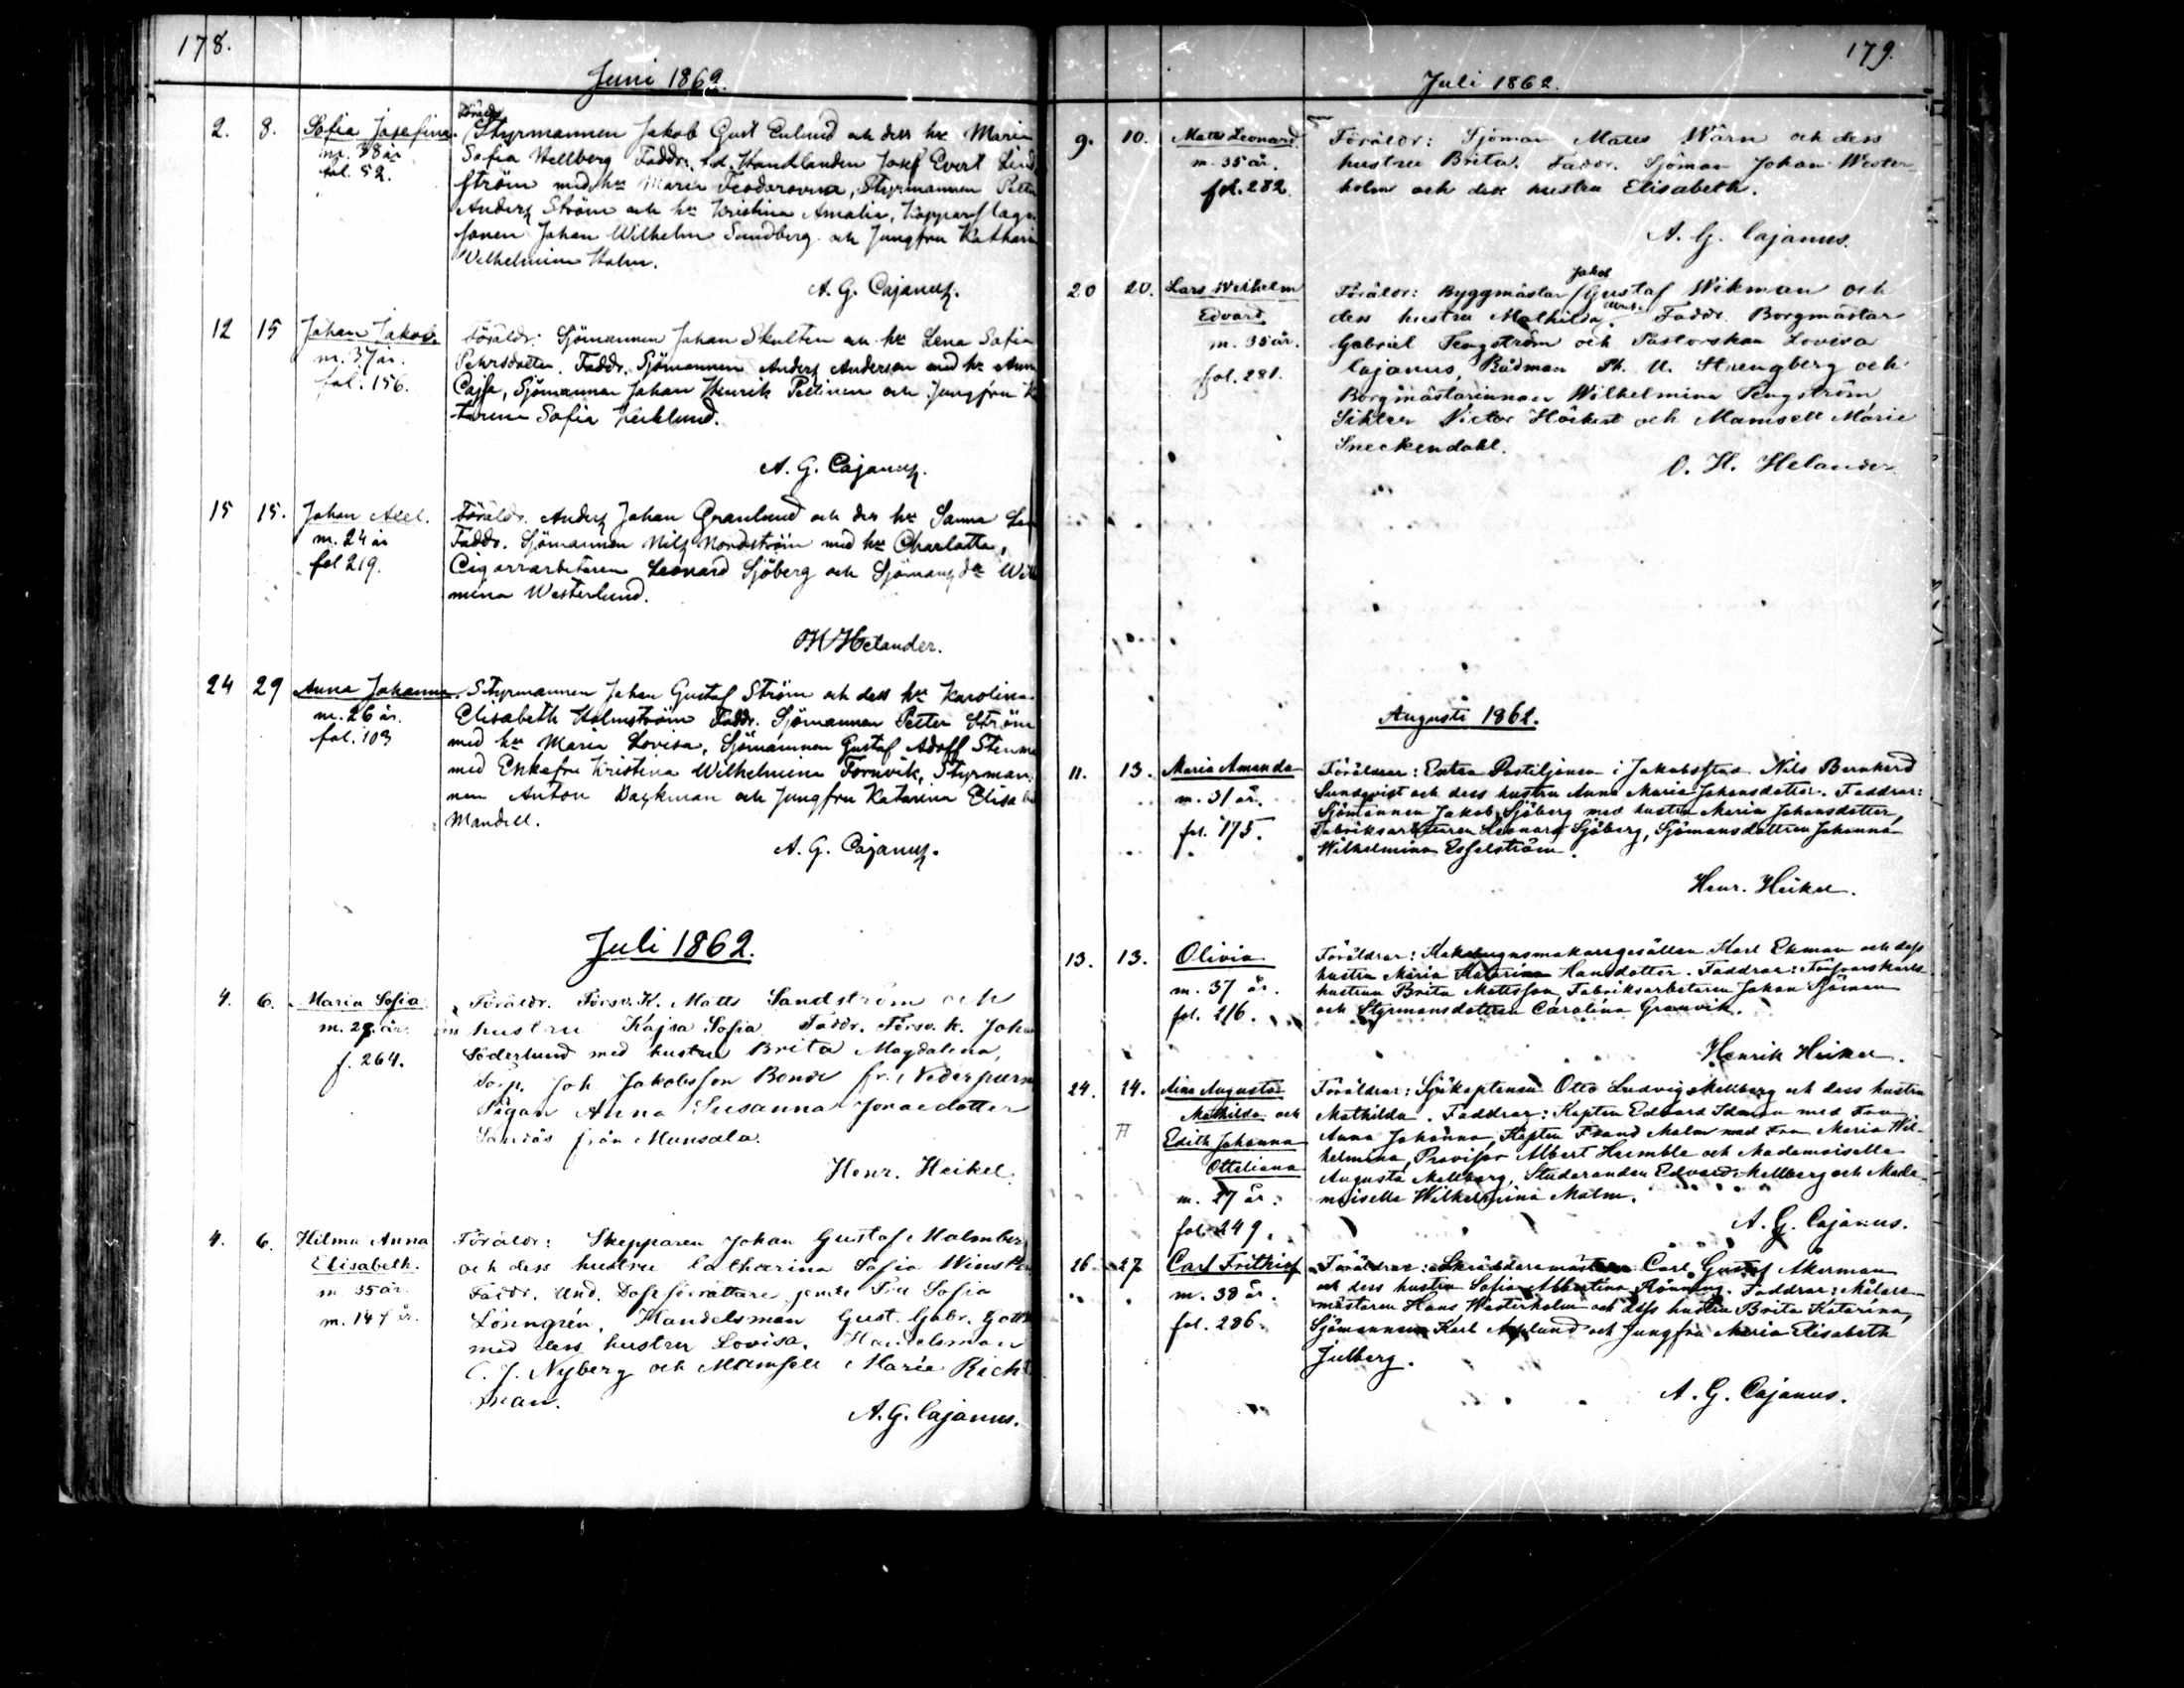 178.
Juni 1862.
2. 8. Sofia Josefina. Föräldr.
m. 38 år
fol. 52.
Styrmannen Jakob Gust Enlund och dess hu Maria
Sofia Hellberg Faddr: f.d. Handlanden Josef Evert Lind
ström med hu Maria Feodorovna, Styrmannen Petter
Anders Ström och hu Kristina Amalia, Kopparslagare
sonen Johan Wilhelm Sundberg och Jungfru Katharina
Wilhelmina Holm.
A. G. Cajanus.
12 15 Johan Jakob.
m. 37 år.
fol. 156.
Föräldr: Sjömannen Johan Skulten och hu Lena Sofia
Pehrsdotter. Faddr. Sjömannen Anders Anderson med hu Anna
Cajsa, Sjömannen Johan Henrik Pellinen och Jungfru
Sofia
A. G. Cajanus.
15 15. Johan Axel.
m. 24 år
fol 219.
Föräldr. Anders Johan Granlund och des hu Sanna
Faddr. Sjömannen Nils Nordström med hu Charlotta,
Cigarrarbetaren Leonard Sjöberg och Sjömans dr Wil
mina Westerlund.
Helander.
24 29 Anna Johanna.
m. 26 år.
fol. 103
Styrmannen Johan Gustaf Ström och dess hu Karolina
Elisabeth Holmström Faddr. Sjömannen Petter Ström
med hu Maria Lovisa, Sjömannen Gustaf Adolf Stenma
med Enkefru Kristina Wilhelmina Fornvik, Styrman
nen Anton Backman och Jungfru Katarina Elisa
Mandell.
A. G. Cajanus.
Juli 1862.
4. 6. Maria Sofia
m. 29 år.
f. 264.
Föräldr. Försv. K. Matts Sandström och
hustru Kajsa Sofia Faddr. Försv. k. Joha
Söderlund med hustru Brita Magdalena,
Joh Jakobsson Bonde fr. Nederpurm
Pigan Anna Susanna Jonaedotter
Sandås från Munsala.
Henr. Heikel.
4. 6. Hilma Anna
Elisabeth.
m 35 år.
m. 147
Föräldr: Skepparen Johan Gustaf Malmber
och dess hustru Catharina Sofia
Faddr. Und. Dosp förrättare jemte Fru Sofia
Lönngrén, Handelsman Gust. Gabr. Gott
med dess hustru Lovisa, Handelsman
C. J. Nyberg och Mamsell Marie Rich
man.
A. G. Cajanus.
179.
Juli 1862.
9. 10. Matts Leonard
m. 35 år.
fol. 282.
Föräldr: Sjöman Matts Wärn och dess
hustru Brita. Faddr. Sjöman Johan Wester-
holm och dess hustru Elisabeth.
A. G. Cajanus.
20 20. Lars Wilhelm
Edvard
m. 35 år.
fol. 281.
Jakob
Föräldr: Byggmästar Gustaf Wikman och
dess hustru Mathilda. Faddr. Borgmästar
Gabriel Tengström och Pastorskan Lovisa
Cajanus, Rådman Ph. U. Strengberg och
Borgmästarinnan Wilhelmina Tengström,
Victor Höckert och Mamsell Marie
Sneckendahl.
O. H. Helander
Augusti 1862.
11. 13. Maria Amanda
m. 31 år.
fol. 175.
Föräldrar: Extra Postiljonen i Jakobstad Nils Bernhard
Sundqvist och dess hustru Anna Maria Johansdotter. Faddrar:
Sjömannen Jakob Sjöberg med hustru Maria Johansdotter,
Fabriksarbetaren Leonard Sjöberg, Sjömansdottren Johanna
Wilhelmina Esselström.
Henr. Heikel.
13. 13. Olivia
m. 37 år.
fol. 216.
Föräldrar: Kakelugnsmakaregesällen Karl Ekman och dess
hustru Maria Katarina Hansdotter. Faddrar: Försvarskarls
hustrun Brita Mattsson, Fabriksarbetaren Johan Sjöman
och Styrmansdottren Carolina Granvik.
Henrik Heikel.
24. 14. Aina Augusta
Mathilda och
Edith Johanna
Otteliana
m. 27 år.
fol. 249.
Föräldrar: Sjökaptenen Otto Ludvig Mellberg och dess hustru
Mathilda. Faddrar: Kapten Edvard Idman med Fru
Anna Johanna, Kapten Frand Malm med Fru Maria Wil-
helmina, Provisor Albert Heimble och Mademoiselle
Augusta Mellberg, Studeranden Edvard Mellberg och Made-
moiselle Wilhelmina Malm.
A. G. Cajanus.
26 27 Carl Frithiof
m. 38 år.
fol. 286.
Föräldrar: Skräddaremästaren Carl Gustaf Åkerman
och dess hustru Sofia Albertina Rönning. Faddrar: Målare-
mästaren Hans Westerholm och dess hustru Brita Katarina,
Sjömannen Karl Asplund och Jungfru Maria Elisabeth
Julberg.
A. G. Cajanus.